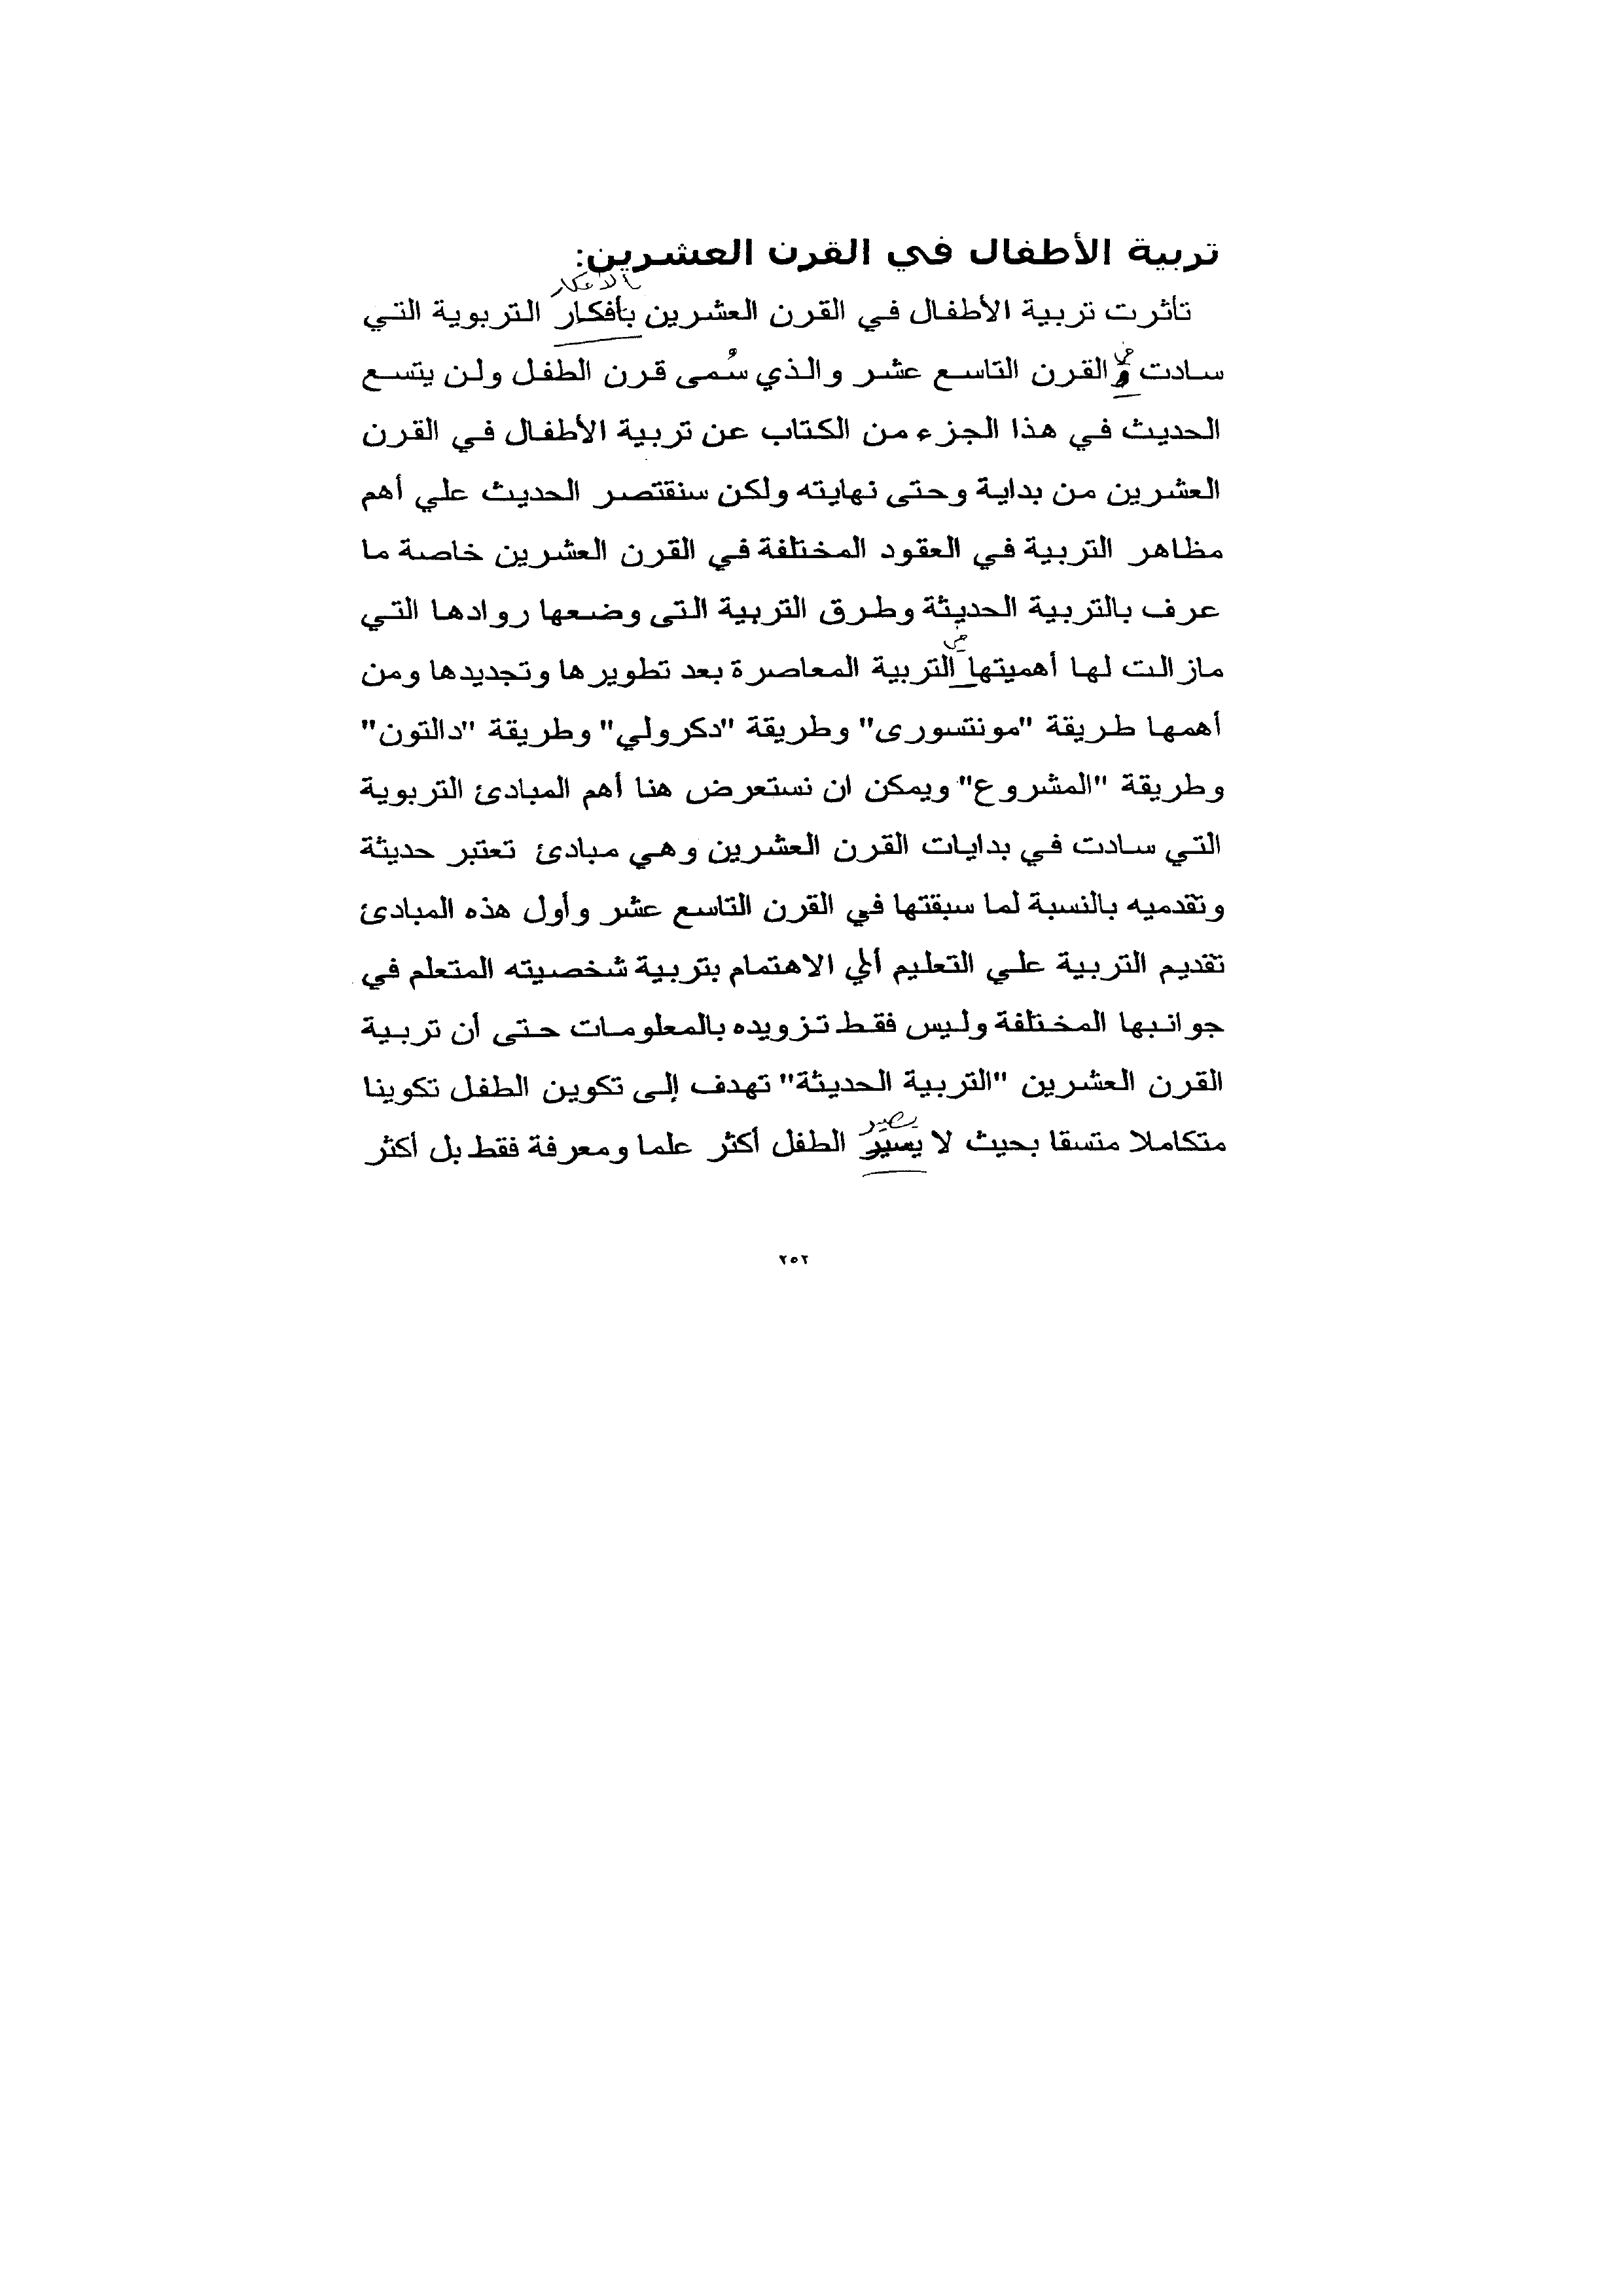 تربية الأطفال في القرن العشرين:
بالأفكار
تأثرت تربية الأطفال في القرن العشرين بأفكار التربوية التي
في
سادت و القرن التاسع عشر والذي سُمى قرن الطفل ولن يتسع
الحديث في هذا الجزء من الكتاب عن تربية الأطفال في القرن
العشرين من بداية وحتى نهايته ولكن سنقتصر الحديث علي أهم
مظاهر التربية في العقود المختلفة في القرن العشرين خاصة ما
عرف بالتربية الحديثة وطرق التربية التى وضعها روادها التي
في
مازالت لها أهميتها التربية المعاصرة بعد تطويرها وتجديدها ومن
أهمها طريقة "مونتسورى" وطريقة "دكرولي" وطريقة "دالتون"
وطريقة "المشروع" ويمكن ان نستعرض هنا أهم المبادئ التربوية
التي سادت في بدايات القرن العشرين وهي مبادئ تعتبر حديثة
وتقدميه بالنسبة لما سبقتها في القرن التاسع عشر وأول هذه المبادئ
تقديم التربية علي التعليم ألي الاهتمام بتربية شخصيته المتعلم في
جوانبها المختلفة وليس فقط تزويده بالمعلومات حتى أن تربية
القرن العشرين "التربية الحديثة" تهدف إلى تكوين الطفل تكوينا
يصير
متكاملا متسقا بحيث لا يسير الطفل أكثر علما ومعرفة فقط بل أكثر
٢٥٢